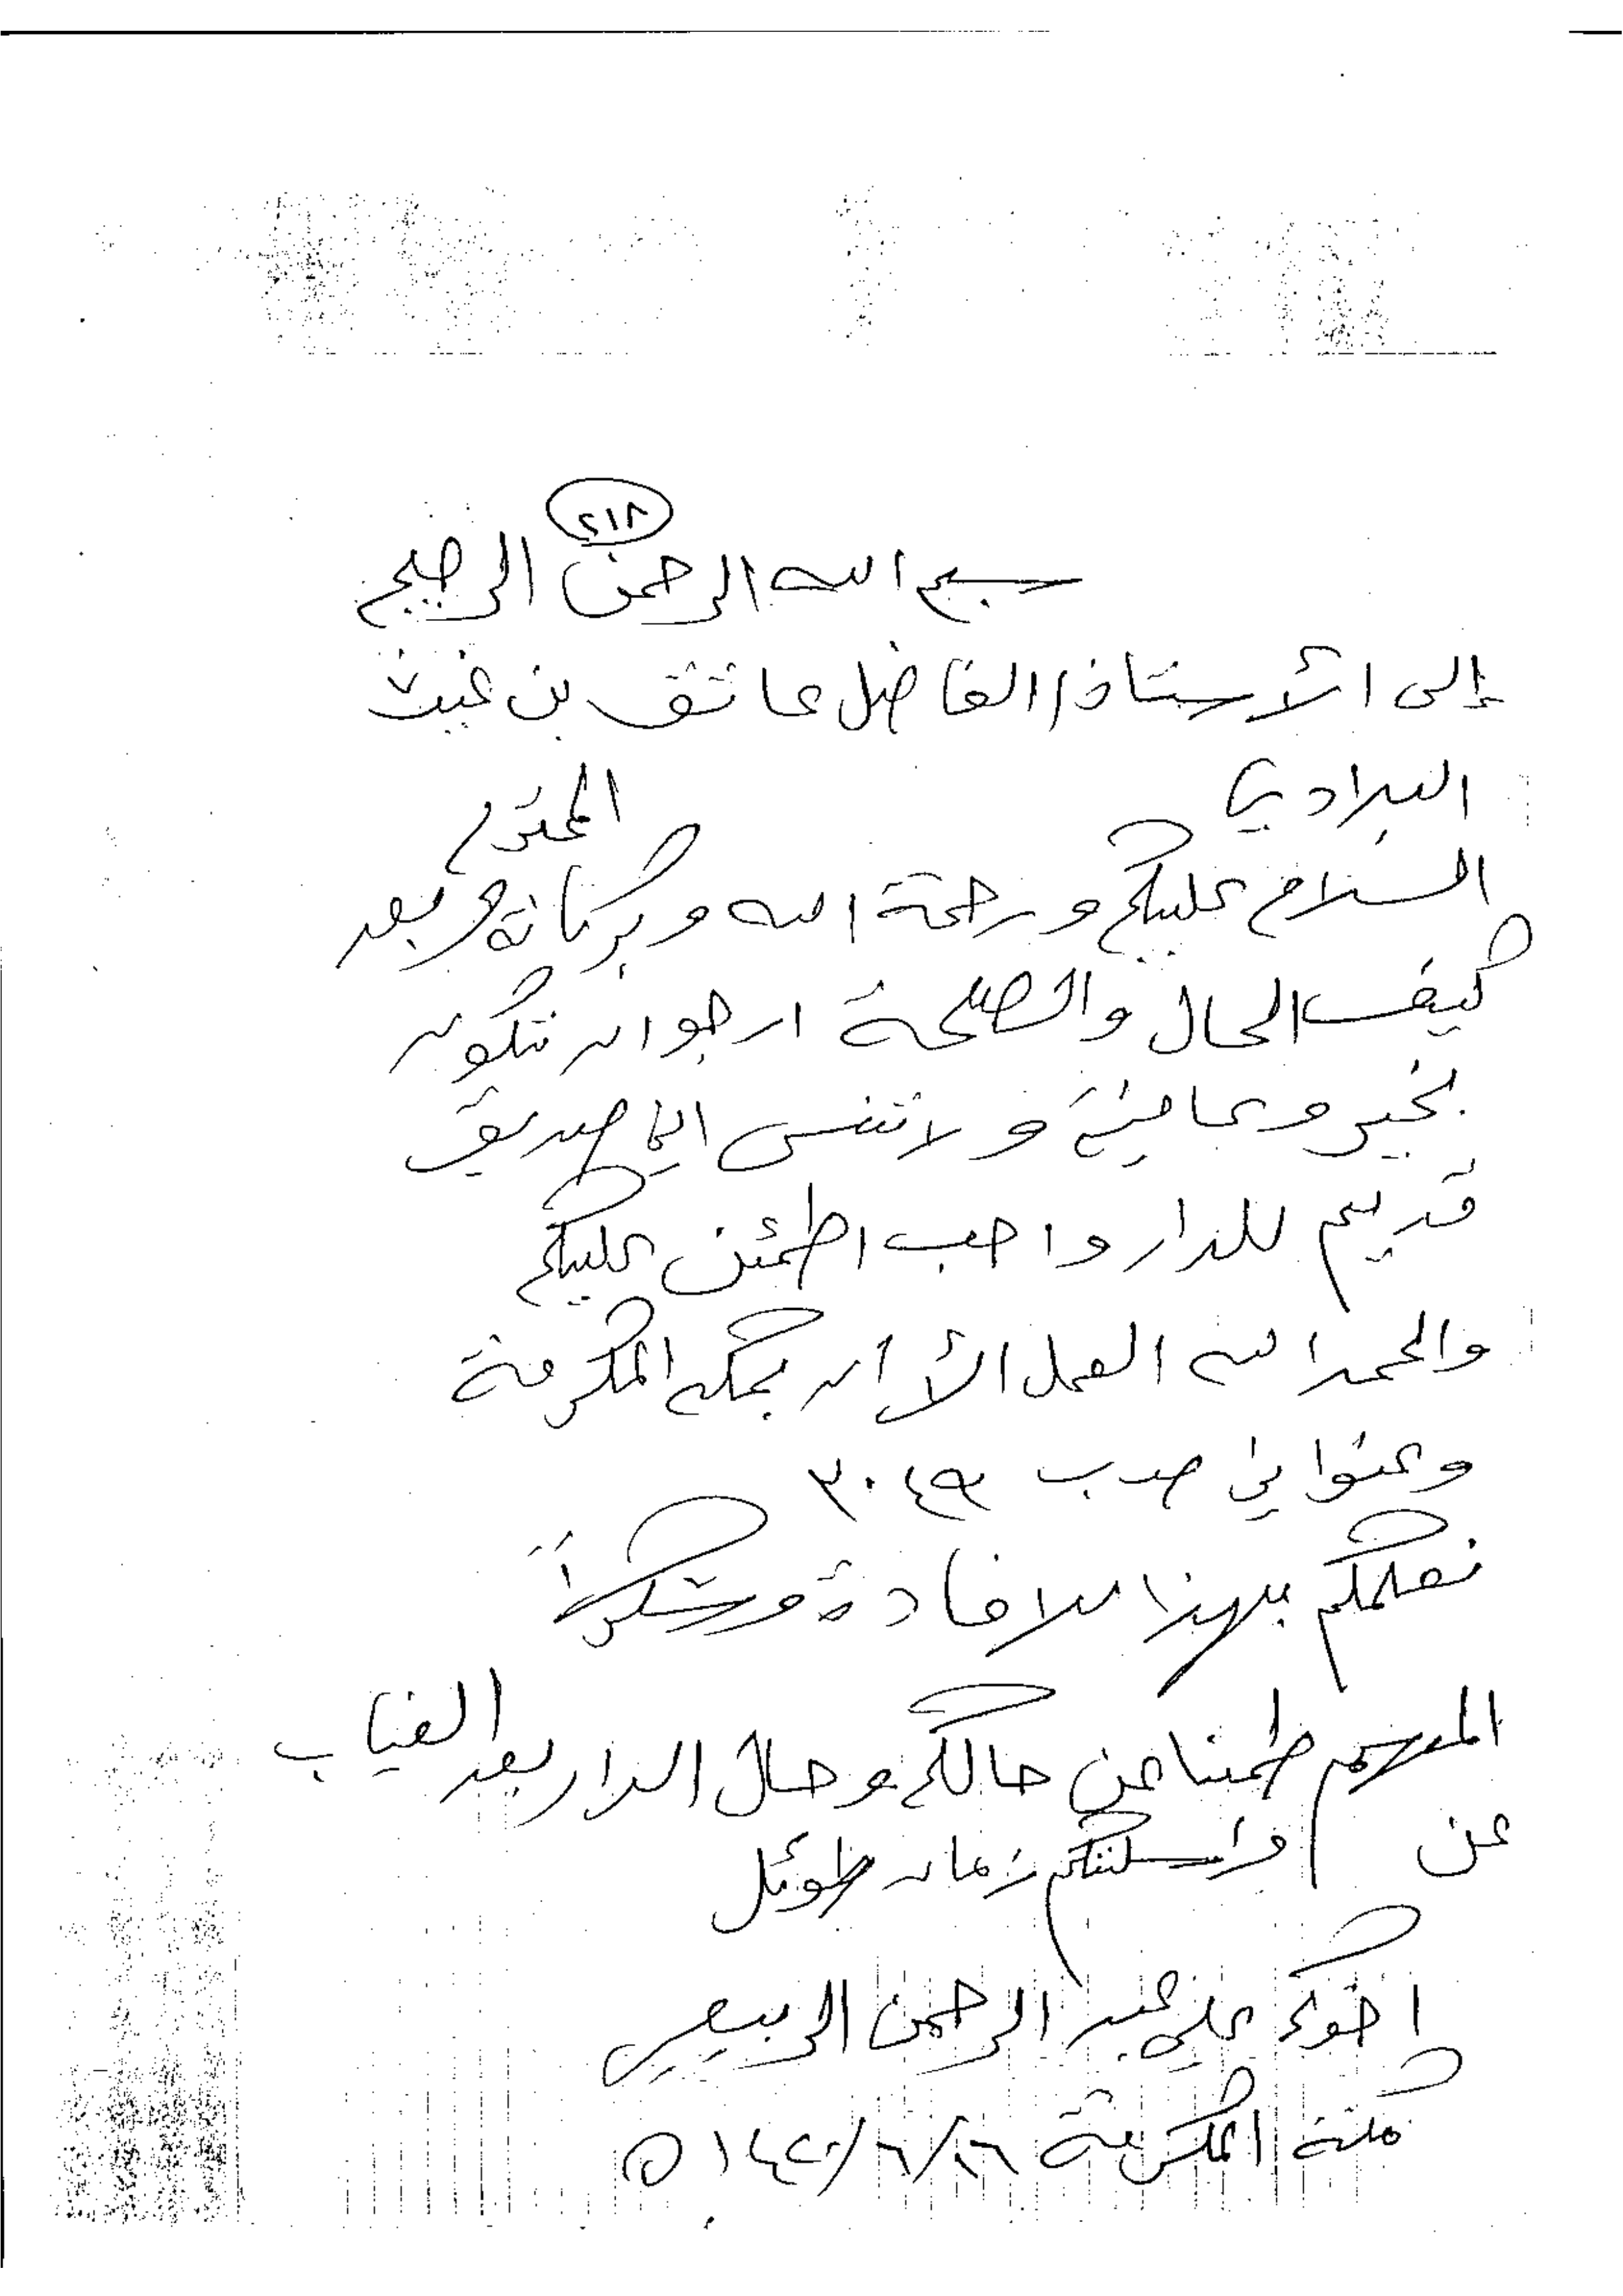 ٢١٨
بسم الله الرحمن الرحيم
إلى الأستاذ/ الفاضل عاتق بن غيث
البلادي المحترم
السلام عليكم ورحمة الله وبركاته وبعد
كيف الحال والصحة ارجو ان تكون
بخير وعافية ولا تنسى اني صديق
قديم للدار واحب اطمئن عليكم
والحمد لله العمل الأأن بمكه المكرمة
وعنواني ص ب ٣٠٤٩
نعلمكم بهذا للافادة وشكراً
المهم طمنا عن حالكم وحال الدار بعد الغياب
عن مراسلتكم زمان طويل
اخوك علي عبد الرحمن الربيعي
مكة المكرمة ٢٦/٦/١٤٢٠ه